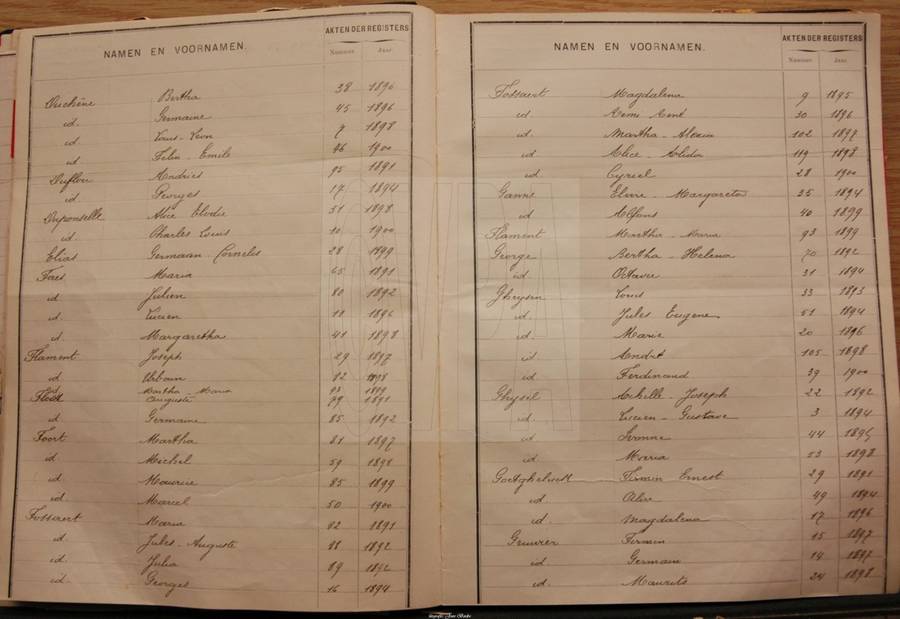 NAMEN EN VOORNAMEN. AKTEN DER REGISTERS
Nummer Jaar
Duchêne Bertha 38 1896
id. Germaine 45 1896
id. Louis-Leon 7 1898
id Felix-Emile 46 1900
Duflou Andries 95 1891
id. Georges 17 1894
Duponselle Alice Elodie 51 1898
id. Charles Louis 10 1900
Elias Germaan-Cornelis 28 1899
Faes Maria 65 1891
id Julien 80 1892
id. Lucien 11 1896
id. Margaretha 41 1898
Flament Joseph 29 1897
id Urbain 82 1898
id Martha Maria 93 1899
Auguste 79 1891
id. Germaine 85 1892
Foort Martha 81 1897
id Michel 59 1898
id Maurice 85 1899
id Marcel 50 1900
Fossaert Maria 82 1891
id. Jules-Auguste 88 1892
id. Julia 89 1892
id. Georges 16 1894
NAMEN EN VOORNAMEN. AKTEN DER REGISTERS
Nummer Jaar
Fossaert Magdalena 9 1895
id. Remi-René 30 1896
id. Martha-Alexia 102 1897
id Alice 119 1898
id Cyriel 28 1900
Ganne Elvire-Margareta 35 1894
id Alfons 40 1899
Flament Martha-Maria 93 1899
George Bertha-Helena 70 1892
id Octavie 31 1894
Gheysen Louis 33 1893
id. Jules Eugene 51 1894
id. Marie 20 1896
id André 105 1898
id. Ferdinand 39 1900
Ghysel Achille-Joseph 22 1892
id. Lucien-Gustave 3 1894
id Irmne 44 1896
id Maria 53 1898
Goetgheluck Firmin Ernest 29 1891
id. Oliva 49 1894
id. Magdalena 17 1896
Gruwier Firmin 15 1897
id. Germain 14 1897
id. Maurits 24 1898